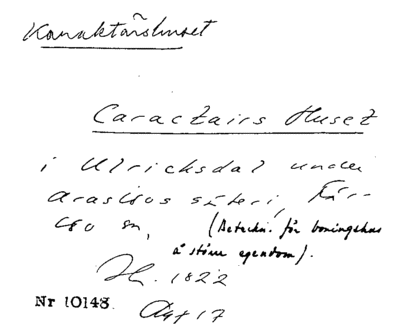 Karaktärshuset
Caractairs Huset
i Ulricksdal under
säteri, Kär-
sn, (Beteckn. för boningshus
å större egendom).
1822
Nr 10148.
17